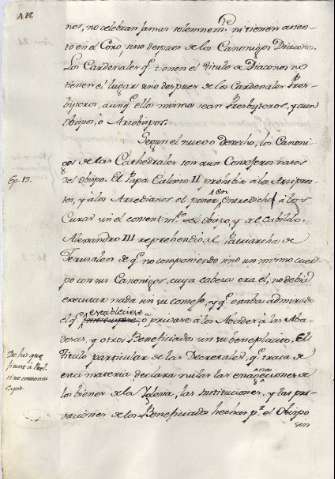 nos, no celebran jamas solemnem.te ni tienen asien
to en el Coro, sino despues de los Canonigos Diaconos
Los Cardenales q.e tienen el titulo de Diaconos no
tienen el lugar sino despues de los Cardenales Pres
biteros, aunq.e ellos mismos sean Presbyteros, y aun
obispos, ò Arzobispos.
Segun el nuevo derecho, los Canoni
gos de las Cathedrales son sus Consejeros natos
del obispo. El Papa Calixto II prohibia a los Arcipres
tes, y a los Arcedianos el poner entredicho a los
Curas sin el consent.mto del obispo, y del Cabildo.
Alexandro III reprehendió al Patriarcha de
Jerusalen de q.e no componiendo sino un mismo cuer
po con sus Canonigos, cuya cabeza era el, no debia
executar nada sin su consejo, y q.e estaba admirado
de q.e estableciese ò privase a los Abades, a las Aba
desas, y otros Beneficiados sin su beneplacito. El
titulo particular de las Decretales q.e trata de
esta materia declara nulas las enagenaciones de
los bienes de la Iglesia, las Instituciones, y las
de los Beneficiados hechas p.r el Obispo
sin
De his que
fiunt à Prel.
sine consensu
Capit.